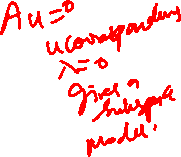 Au=0
u corresponding
λ=0
gives a
subspace
model.